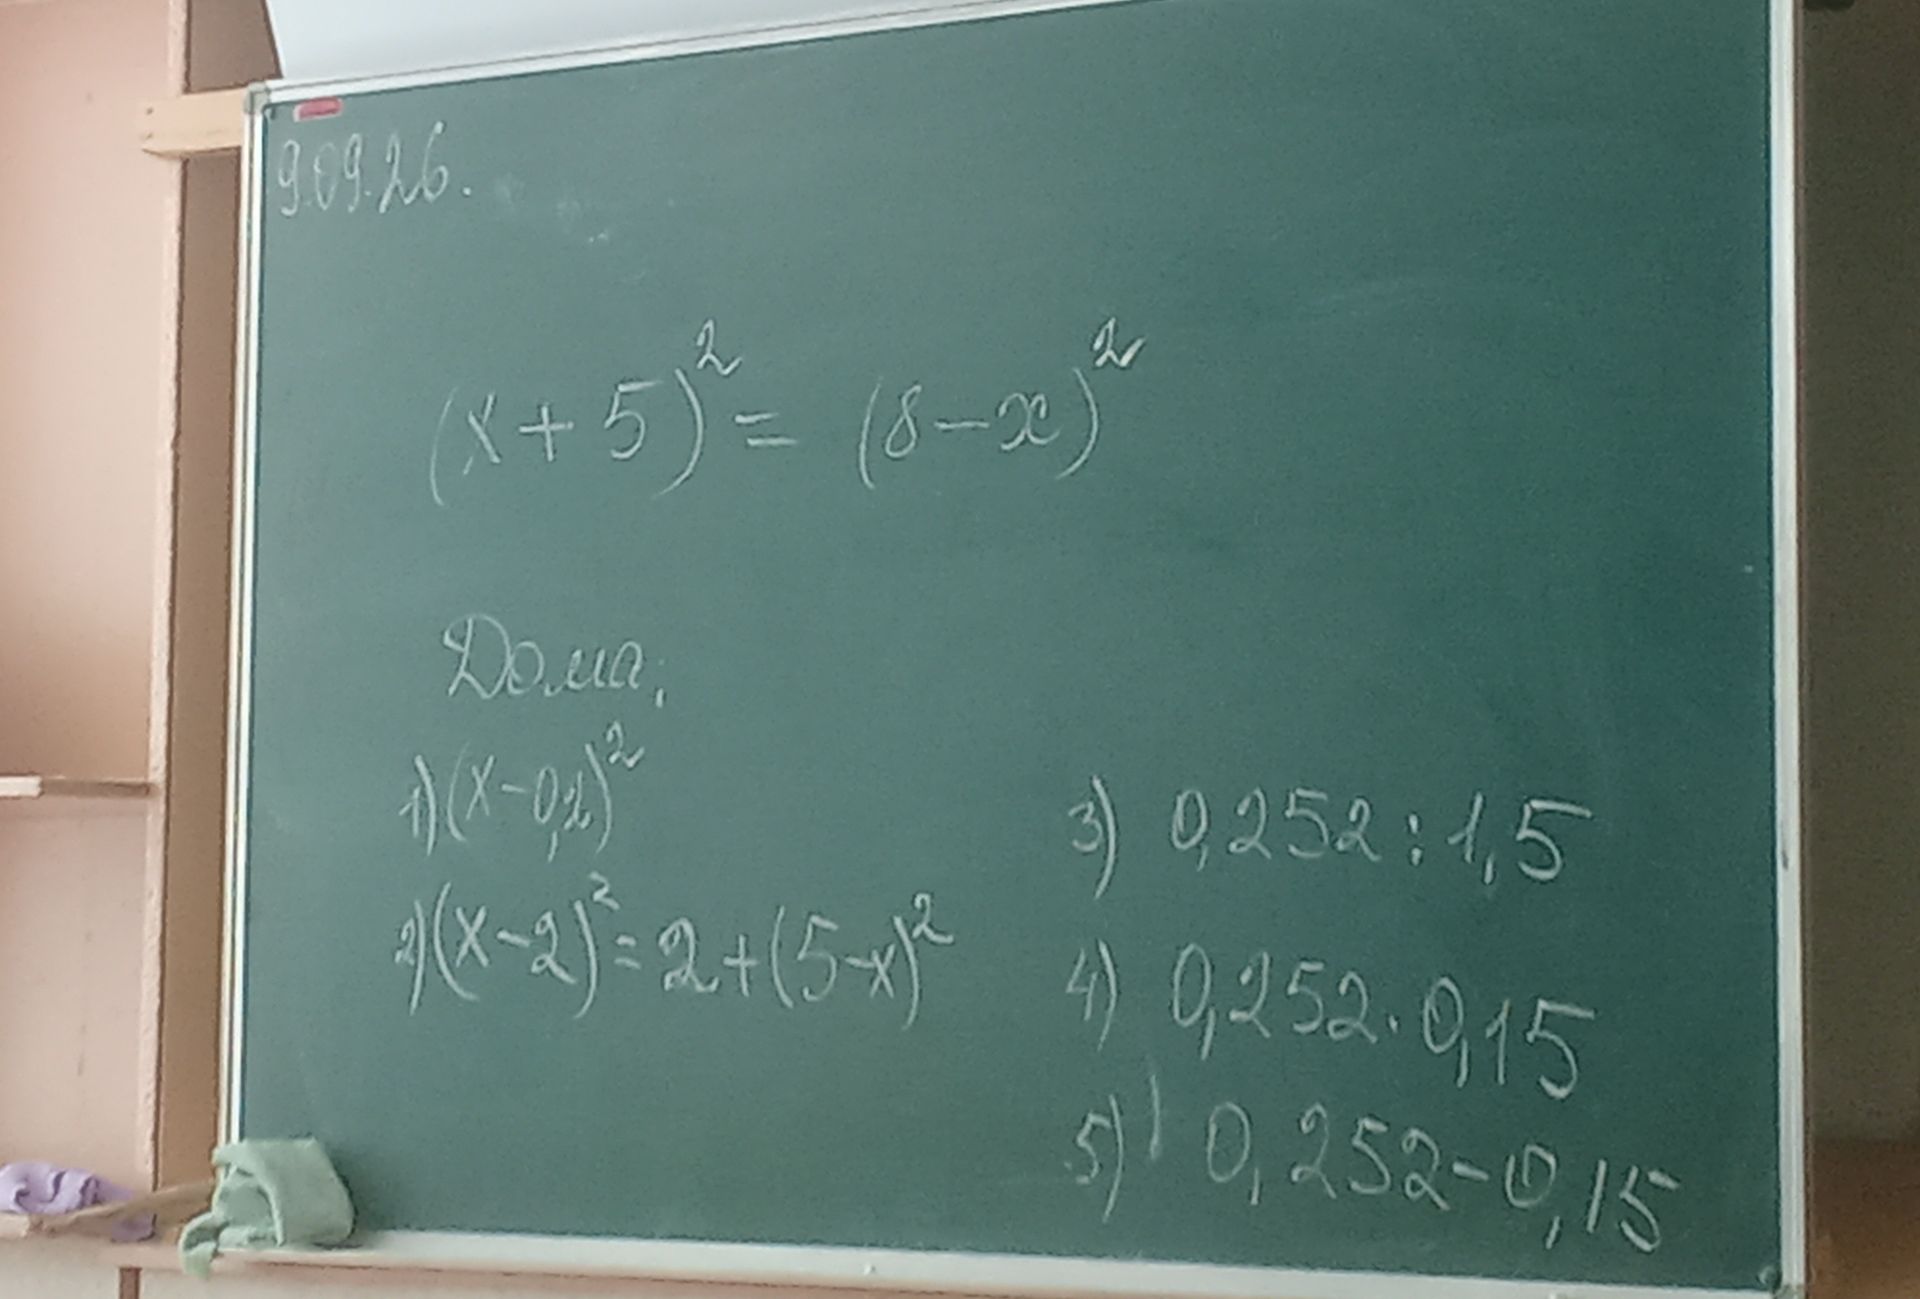 9.09.26.
(x + 5)² = (8 - x)²
Дома:
1) (x - 0,2)²
2) (x - 2)² = 2 + (5 - x)²
3) 0,252 : 1,5
4) 0,252 · 0,15
5) 0,252 - 0,15